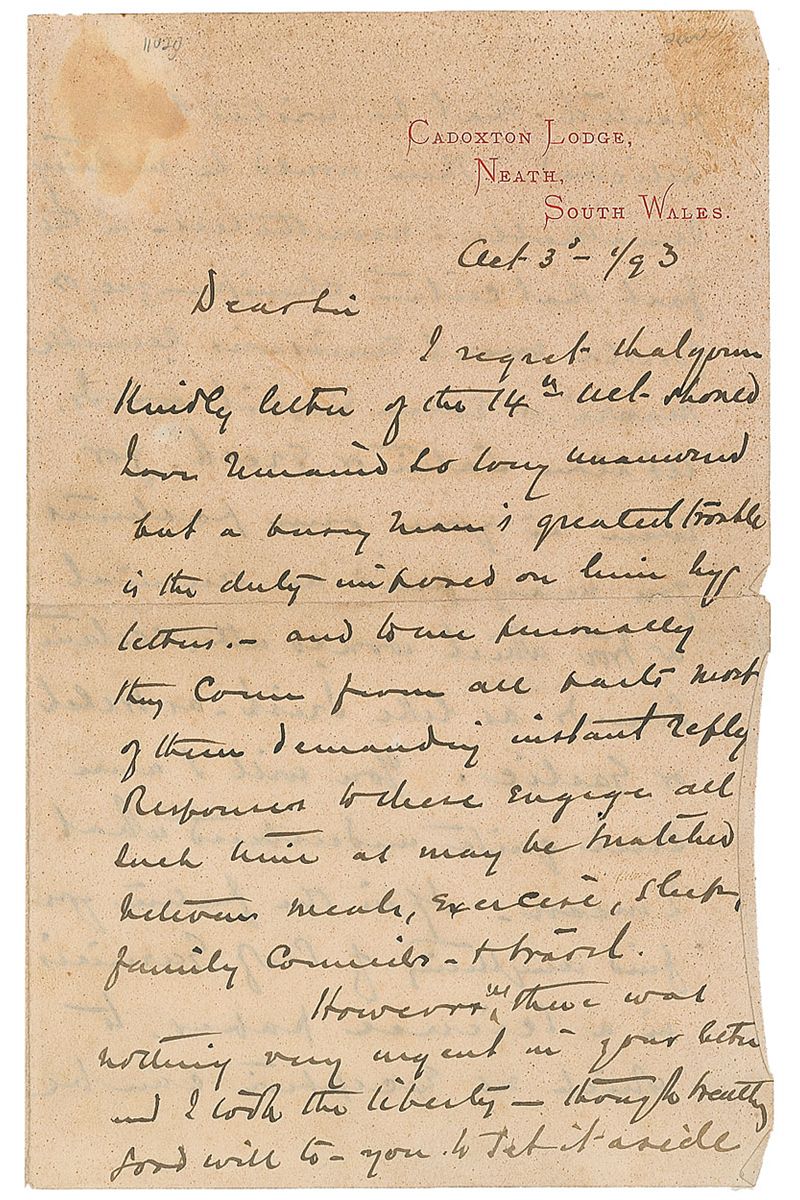 CADOXTON LODGE,
NEATH,
SOUTH WALES.
Oct 3 - 1/93
Dear Sir
I regret that your
Kindly letter of the 14th Oct - should
have remained so long unanswered
but a busy man's greatest trouble
is the duty imposed on him by
letters. - and to me personally
they come from all parts most
of them demanding instant reply
Responses to these engage all
such time as may be snatched
between meals, exercise, sleep,
family Councils - & travel.
However, there was
nothing very urgent in your letter
and I took the liberty - though breathing
good will to - you to set it aside